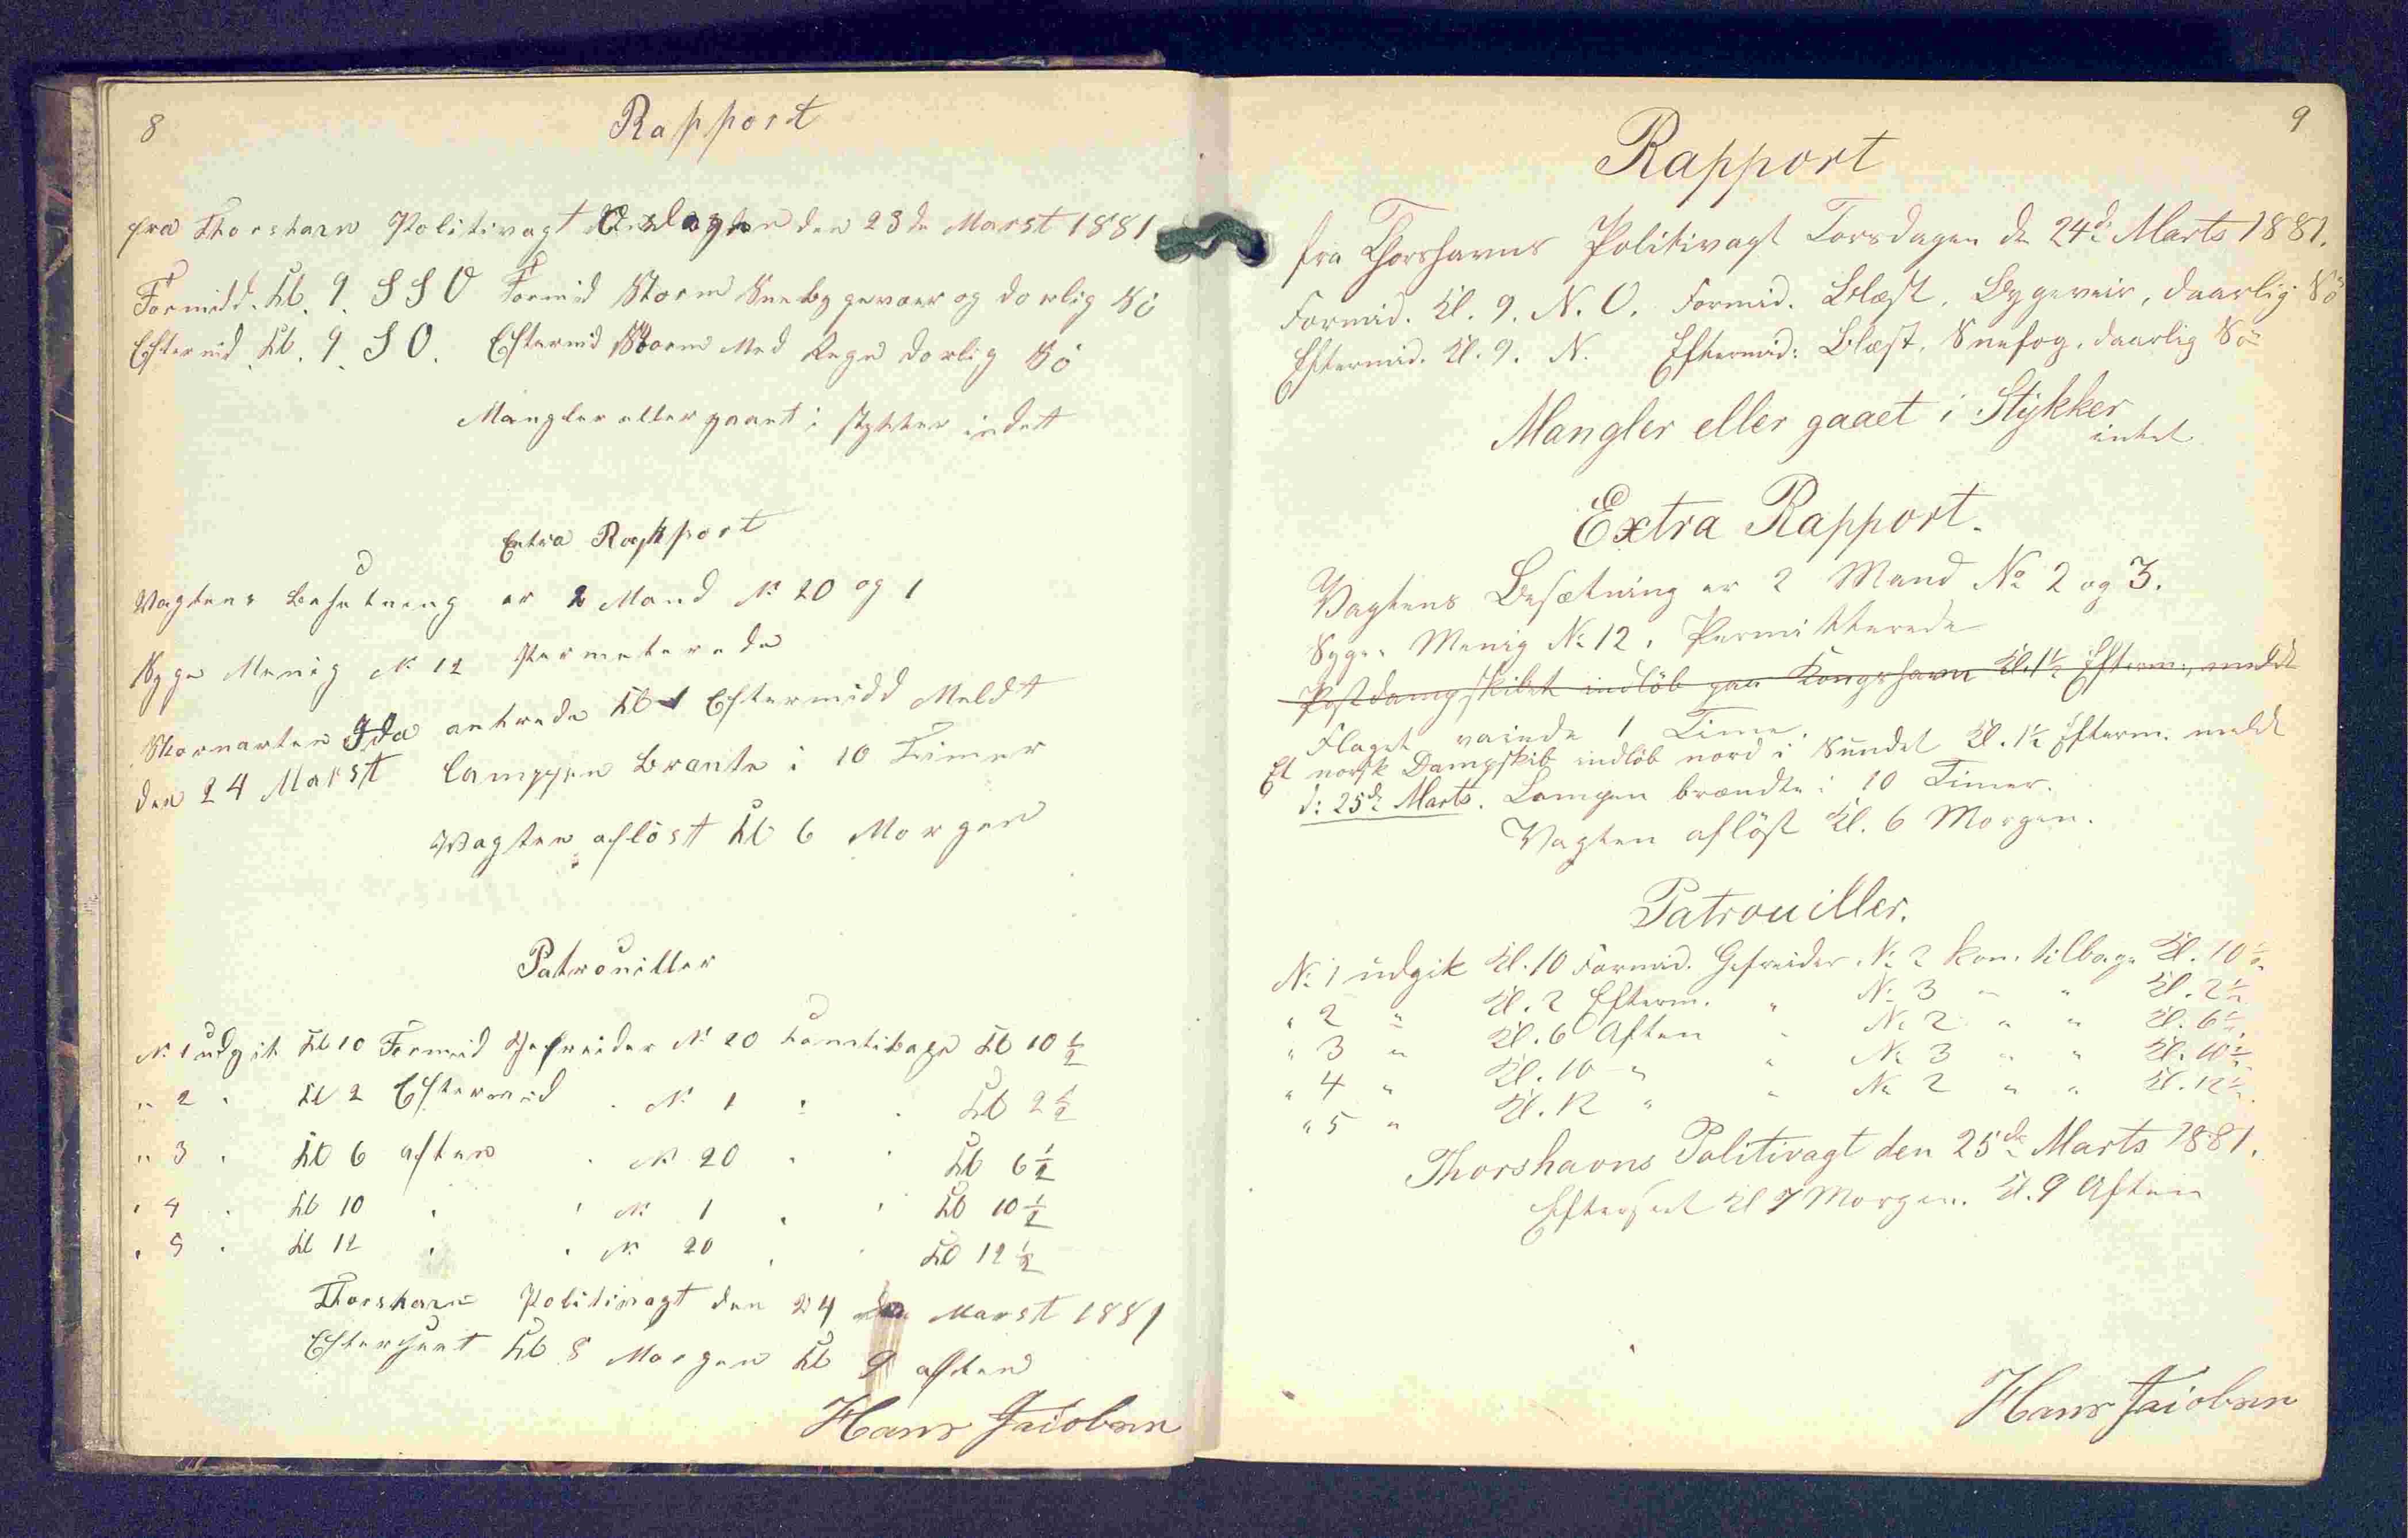 8
Rapport
fra Thorshavn Politivagt Onsdagen den 23de Marst 1881
Formidd. Kl. 9. S S O Formid Storm Snebygevær og dorlig Sö
Eftermid Kl. 9. S O. Eftermid Storm Med Regn dorlig Sö
Mangler eller gaaet i stykker indet
Extra Rapport
Vagtens Besetning er 2 Mand No 20 og 1
Syge Menig No 12 Permeterede
Skonnarten Ida ankrede Kl 1 Eftermidd Meldt
den 24 Marst Lamppen Brænte i 10 Timer
Vagten aflöst Kl 6 Morgen
Patrouiller
No 1 udgik Kl 10 Formid Gefreider No 20 komtilbage Kl 10 1/2
" 2 " Kl 2 Eftermid " No 1 " " Kl 2 1/2
" 3 " Kl 6 aften " No 20 " " Kl 6 1/2
" 4 " Kl 10 " " No 1 " " Kl 10 1/2
" 5 " Kl 12 " " No 20 " " Kl 12 1/2
Thorshavn Politivagt den 24 Marst 1881
Efterseet Kl 8 Morgen Kl 9 aften
Hans Jacobsen
9
Rapport
fra Thorshavns Politivagt Torsdagen d. 24de Marts 1881.
Formid. Kl. 9. N. O. Formid. Blæst, Bygeveir, daarlig Sö
Eftermid. Kl. 9. N. Eftermid: Blæst, Snefog, daarlig Sö
Mangler eller gaaet i Stykker
intet
Extra Rapport.
Vagtens Besætning er 2 Mand No 2 og 3.
Syge: Menig No 12, Permitterede
Postdampskibet indlöb paa Kongshavn Kl. 1 1/2 Efterm:, meldt
Flaget vaiede 1 Time.
Et norsk Dampskib indlöb nord i Sundet Kl. 1 1/2 Efterm. meldt
d: 25de Marts. Lampen brændte i 10 Timer.
Vagten aflöst Kl. 6 Morgen.
Patrouiller.
No 1 udgik Kl. 10 Formid. Gefreider No 2 kom tilbage Kl. 10 1/2
" 2 " Kl. 2 Efterm. " No 3 " " Kl. 2 1/2
" 3 " Kl. 6 Aften " No 2 " " Kl. 6 1/2
" 4 " Kl. 10 " " No 3 " " Kl. 10 1/2
" 5 " Kl. 12 " " No 2 " " Kl. 12 1/2
Thorshavns Politivagt den 25de Marts 1881.
Efterseet Kl 7 Morgen. Kl. 9 Aften
Hans Jacobsen